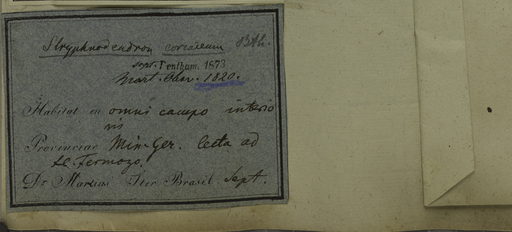 Stryphnodendron coriaceum Bth.
sept. Bentham. 1873
Mart. Obs. 1820.
Habitat in omni campo interio
ris
Provinciae Min. Ger. lecta ad
Dr. Martius Iter Brasil Sept.